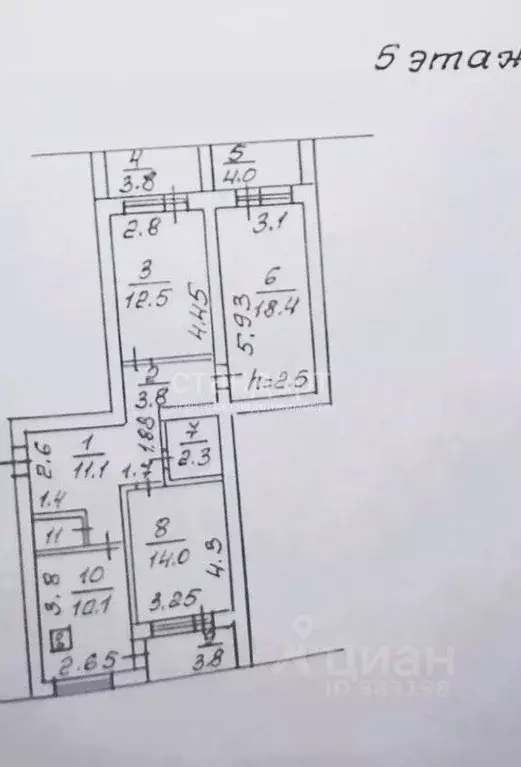 5 этаж
4
3.8
5
4.0
2.8
3.1
3
12.5
4.45
6
18.4
5.93
h=2.5
2
3.8
1.88
7
2.3
1
11.1
2.6
1.7
1.4
11
8
14.0
4.3
3.25
10
10.1
3.8
2.65
9
3.8
циан
ID 383198